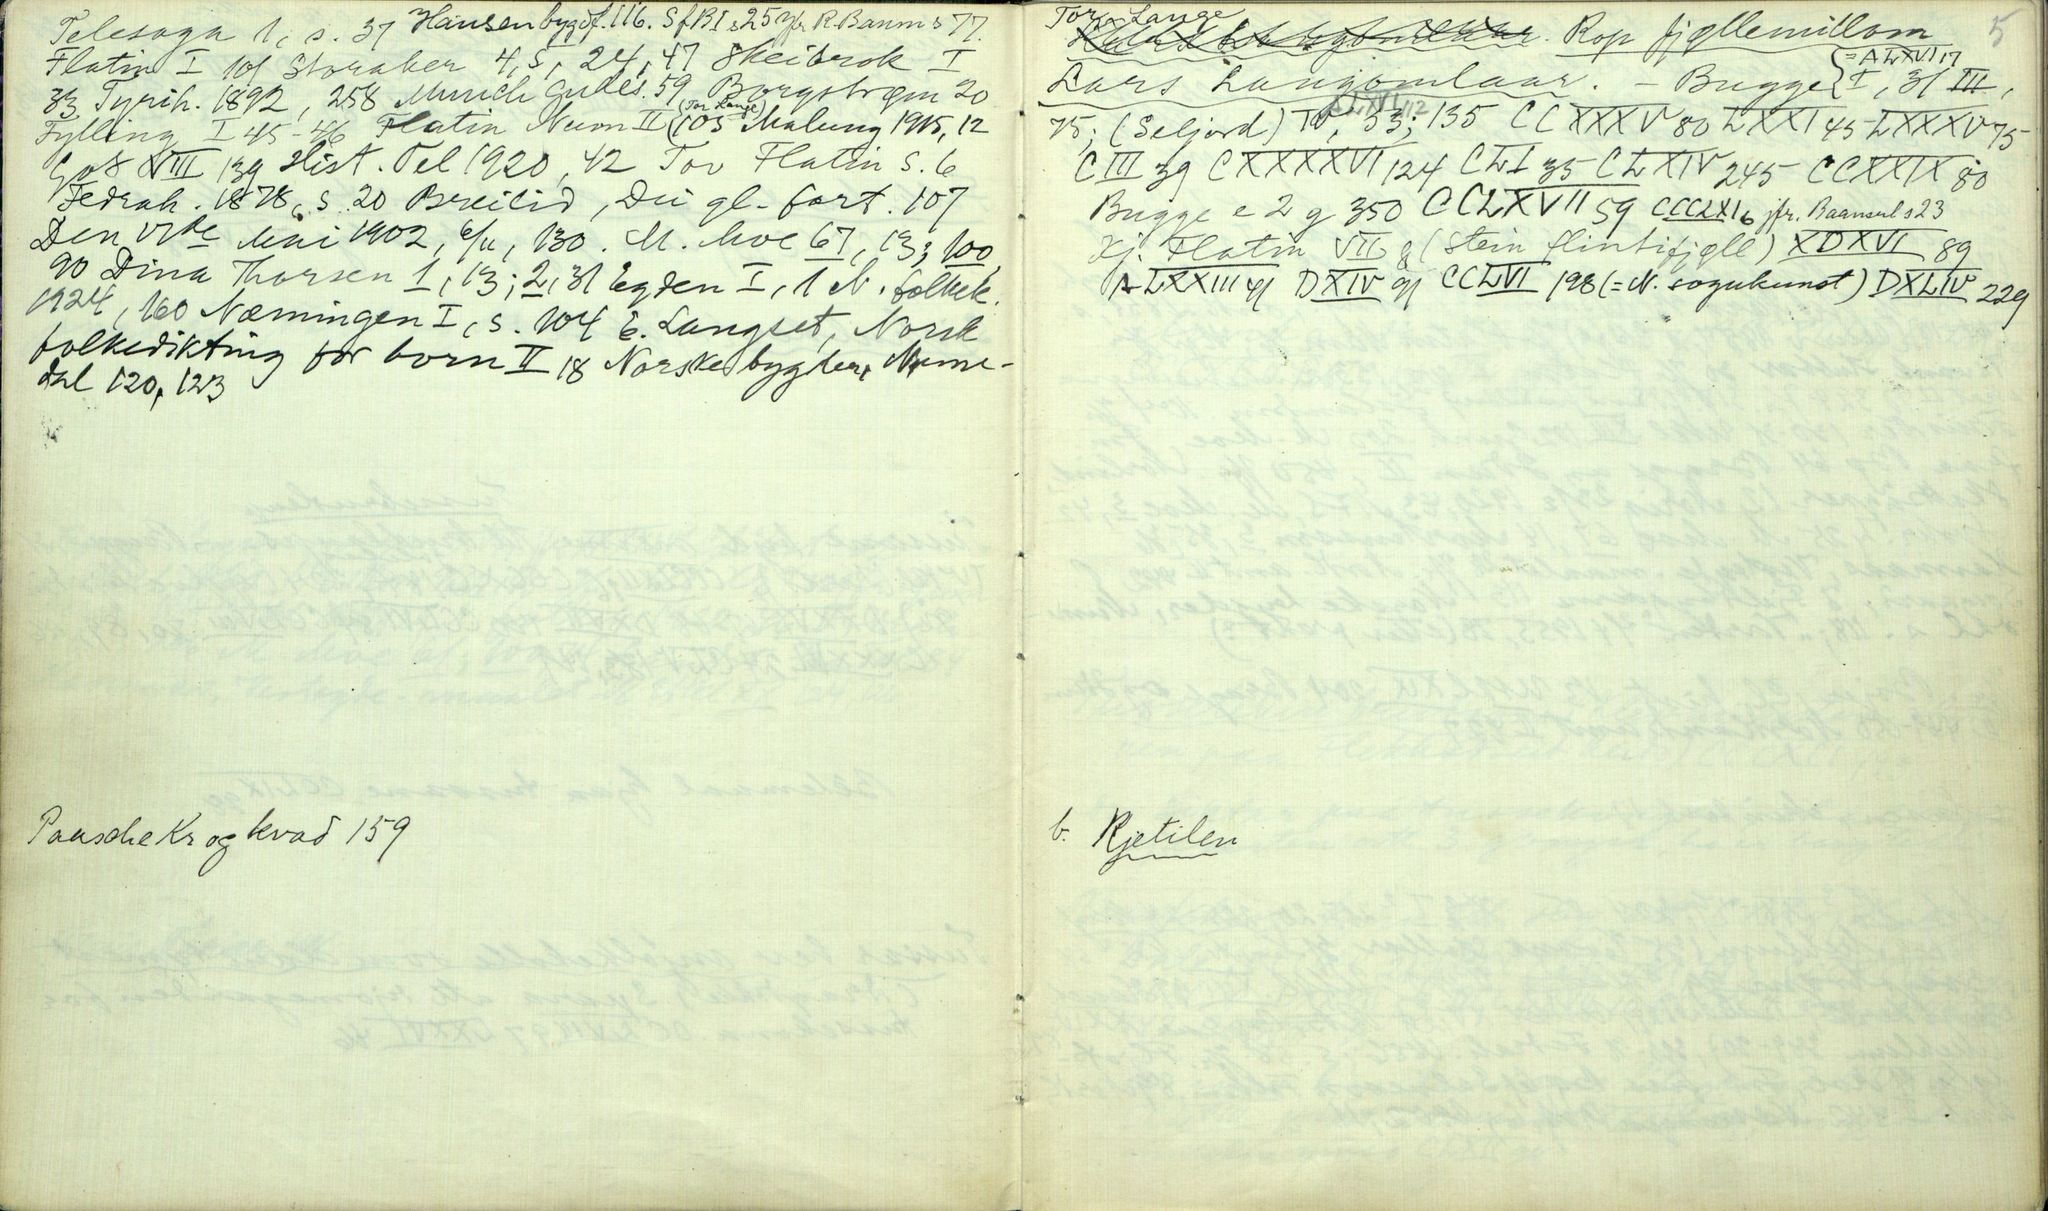 Telesoga 1, s. 37 Hansen bygdf. 116. SfBI s 25 jfr R. Baanm s 77.
Flatin I 101 Storaker 4, 5, 24, 47 Skeibrok I
33 Tyrih. 1892, 258 Munch Gudes. 59 Borgstrøm 20
Fylling I 45-46 Flatin Numn II (Tor Lange) (105 Malung 1915, 12
Go8 VIII 139 Hist. Tel 1920, 42 Tov Flatin s. 6
Fedrah. 1878, s 20 Breilid, Dei gl. fort. 107
Den 17de Mai 1902, 6/11, 130. M. Moe 67, 13; 100,
90 Dina Thorsen 1, 13; 2, 31 Egden I, 1 N. folkek.
1924, 160 Næmingen I, s. 104 E. Langset, Norsk
folkedikting for born II 18 Norske bygder, Nume-
dal 120, 123
Paasche Kr og kvad 159
5
Tor Lange
Rop fjøllemillom
Lars Langomlaar. - Bugge { = ALXVI 17 I, 31 III,
75; (Seljord) IV, 33; 135 CCXXXV 80 LXXI 45 LXXXV 75
CIII 39 CXXXXVI 124 CLI 35 CLXIV 245 CCXXIX 80
Bugge e 2 g 350 CCLXVII 59 CCCLXI 6 jfr. Baansul s 23
Kj. Flatin VII 8 (Stein flintifjøll) XDXVI 89
ALXXIII 41 DXIV 91 CCLVI 198 (= N. sogukunst) DXLIV 229
b. Kjetilen